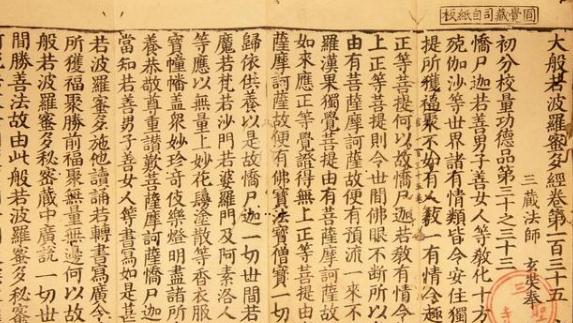 圓覺藏司自紙板
大般若波羅蜜多經卷第一百三十五
三藏法師 玄奘奉
初分校量功德品第三十之三十三
憍尸迦若善男子善女人等教化十方
殑伽沙等世界諸有情類皆令安住獨
提所獲福聚不如有人教一有情令趣
正等菩提何以故憍尸迦若教有情令
上正等菩提則令世間佛眼不斷所以
有菩薩摩訶薩故便有預流一來不
羅漢果獨覺菩提由有菩薩摩訶薩故
如來應正等覺證得無上正等菩提由
薩摩訶薩故便有佛寶法寶僧寶一切
歸依供養以是故憍尸迦一切世間若
魔若梵若沙門若婆羅門及阿素洛人
等應以無量上妙花鬘塗散等香衣服
寶幢幡蓋衆妙珍奇伎樂燈明盡諸所
養恭敬尊重讚歎菩薩摩訶薩憍尸迦
當知若善男子善女人等書寫如是甚
若波羅蜜多施他讀誦若轉書寫廣令
所獲福聚勝前福聚無量無邊何以故
般若波羅蜜多秘密藏中廣說一切世
間勝善法故由此般若波羅蜜多秘密